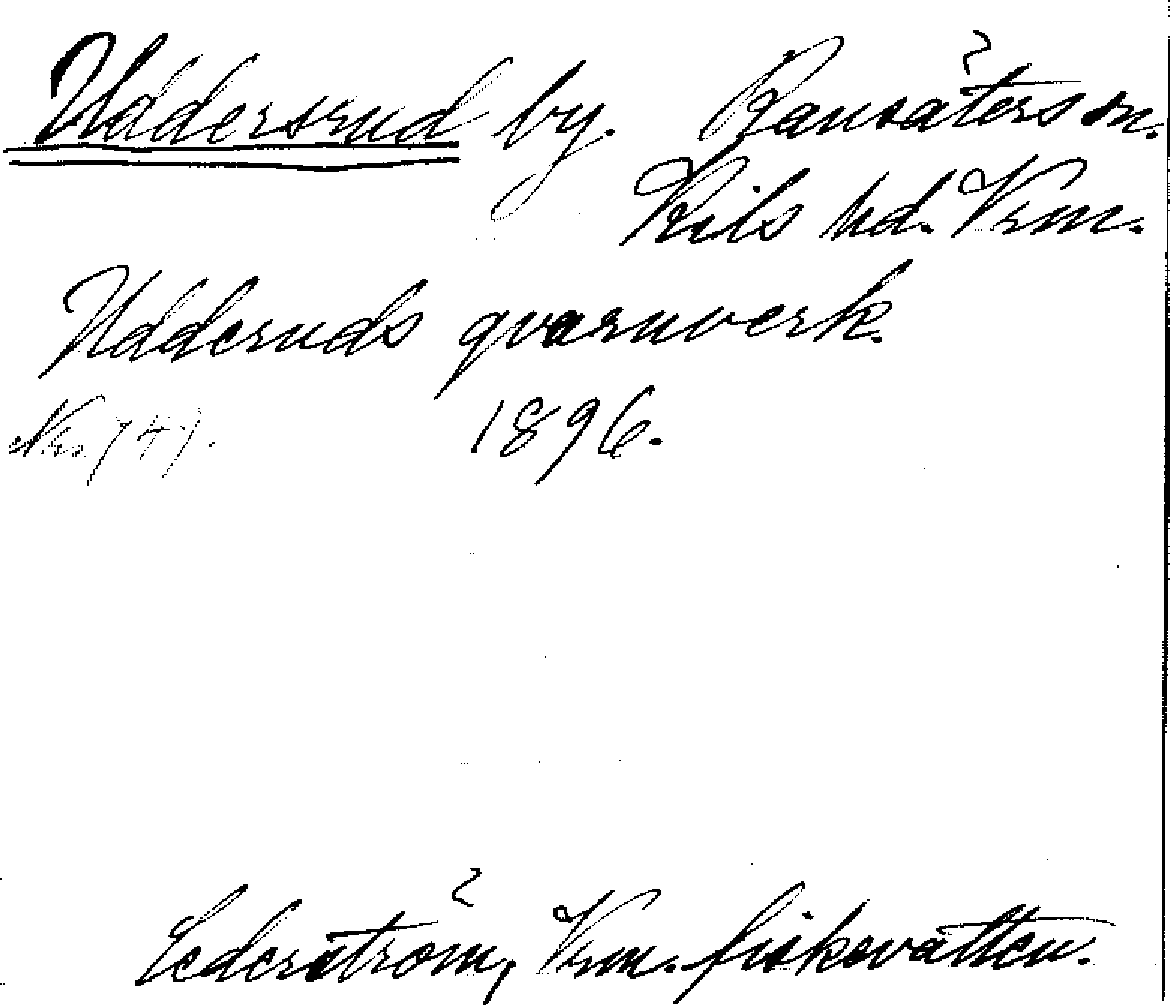 Uddersrud by. Ransäters sn.
Kils hd. Vrm.
Udderuds qvarnverk.
No. 741. 1896.
Cederström, Vrm. fiskevatten.